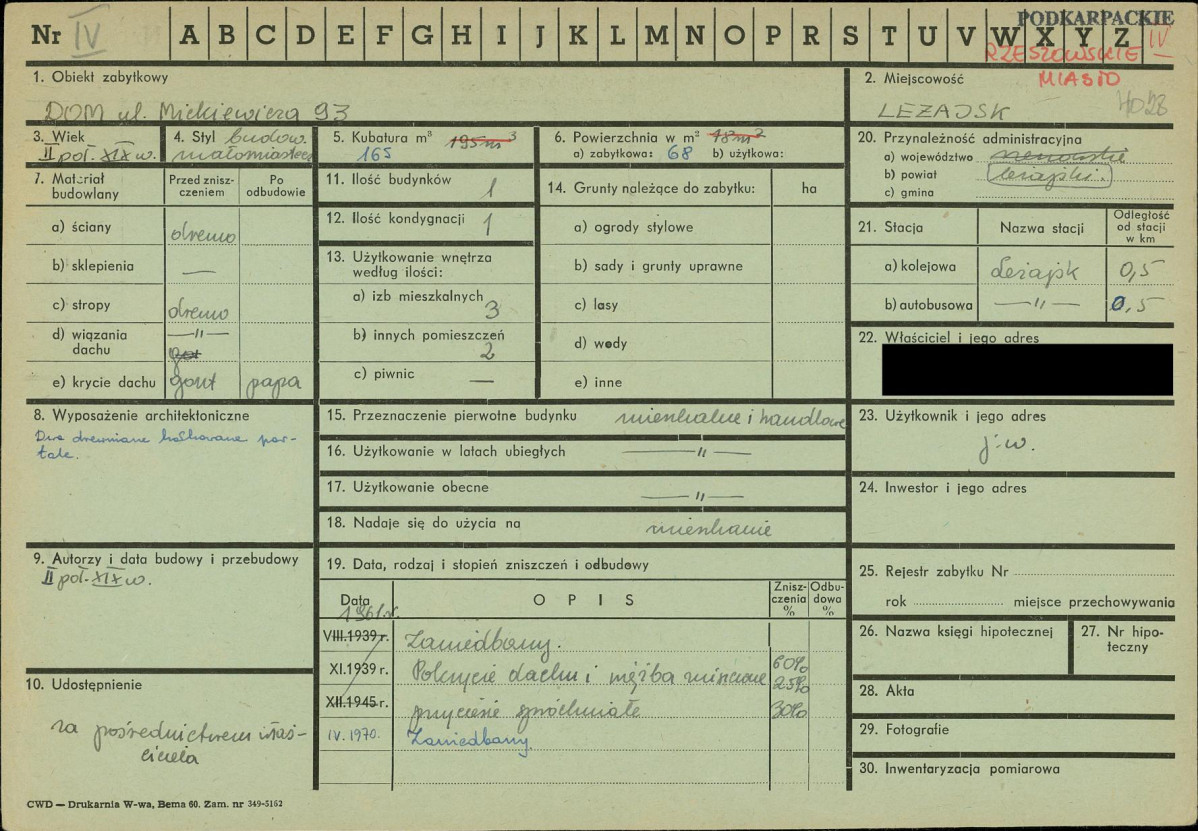 PODKARPACKIE
Nr IV A B C D E F G H I J K L M N O P R S T U V W X Y Z IV
RZESZOWSKIE
MIASTO
1. Obiekt zabytkowy
DOM ul. Mickiewicza 93
2. Miejscowość
LEŻAJSK
3. Wiek
II poł. XIX w.
4. Styl budow.
małomiastecz
5. Kubatura m³ 195m³
165
6. Powierzchnia w m² 48m²
a) zabytkowa: 68 b) użytkowa:
7. Materiał budowlany
Przed zniszczeniem
Po odbudowie
a) ściany drewno
b) sklepienia —
c) stropy drewno
d) wiązania dachu —„—
got
e) krycie dachu gont papa
8. Wyposażenie architektoniczne
Dwa drewniane bośkowane por-
tale.
9. Autorzy i data budowy i przebudowy
II poł. XIX w.
10. Udostępnienie
za pośrednictwem właś-
ciciela
11. Ilość budynków 1
12. Ilość kondygnacji 1
13. Użytkowanie wnętrza
według ilości:
a) izb mieszkalnych 3
b) innych pomieszczeń 2
c) piwnic —
14. Grunty należące do zabytku: ha
a) ogrody stylowe
b) sady i grunty uprawne
c) lasy
d) wody
e) inne
15. Przeznaczenie pierwotne budynku mieszkalne i handlowe
16. Użytkowanie w latach ubiegłych —„—
17. Użytkowanie obecne —„—
18. Nadaje się do użycia na mieszkanie
19. Data, rodzaj i stopień zniszczeń i odbudowy
Data OPIS Zniszczenia % Odbudowa %
1961r.
VIII.1939 r. Zaniedbany.
XI.1939 r. Pokrycie dachu i więźba zniszczone 60%
25%
XII.1945 r. przyciesie spróchniałe 30%
IV. 1970. Zaniedbany.
20. Przynależność administracyjna
a) województwo rzeszowskie
b) powiat leżajski.
c) gmina
21. Stacja Nazwa stacji Odległość od stacji w km
a) kolejowa Leżajsk 0,5
b) autobusowa —„— 0,5
22. Właściciel i jego adres
23. Użytkownik i jego adres
j.w.
24. Inwestor i jego adres
25. Rejestr zabytku Nr
rok miejsce przechowywania
26. Nazwa księgi hipotecznej
27. Nr hipo-
teczny
28. Akta
29. Fotografie
30. Inwentaryzacja pomiarowa
CWD — Drukarnia W-wa, Bema 60. Zam. nr 349-5162